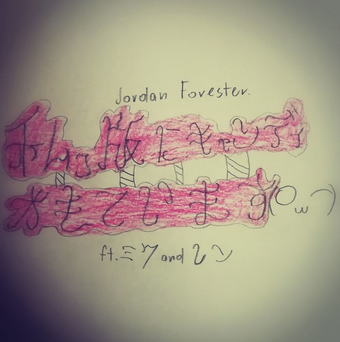 Jordan Forester.
私は敵にキャンディ
をもています(O_ω⌒)
ft. ミク and レン